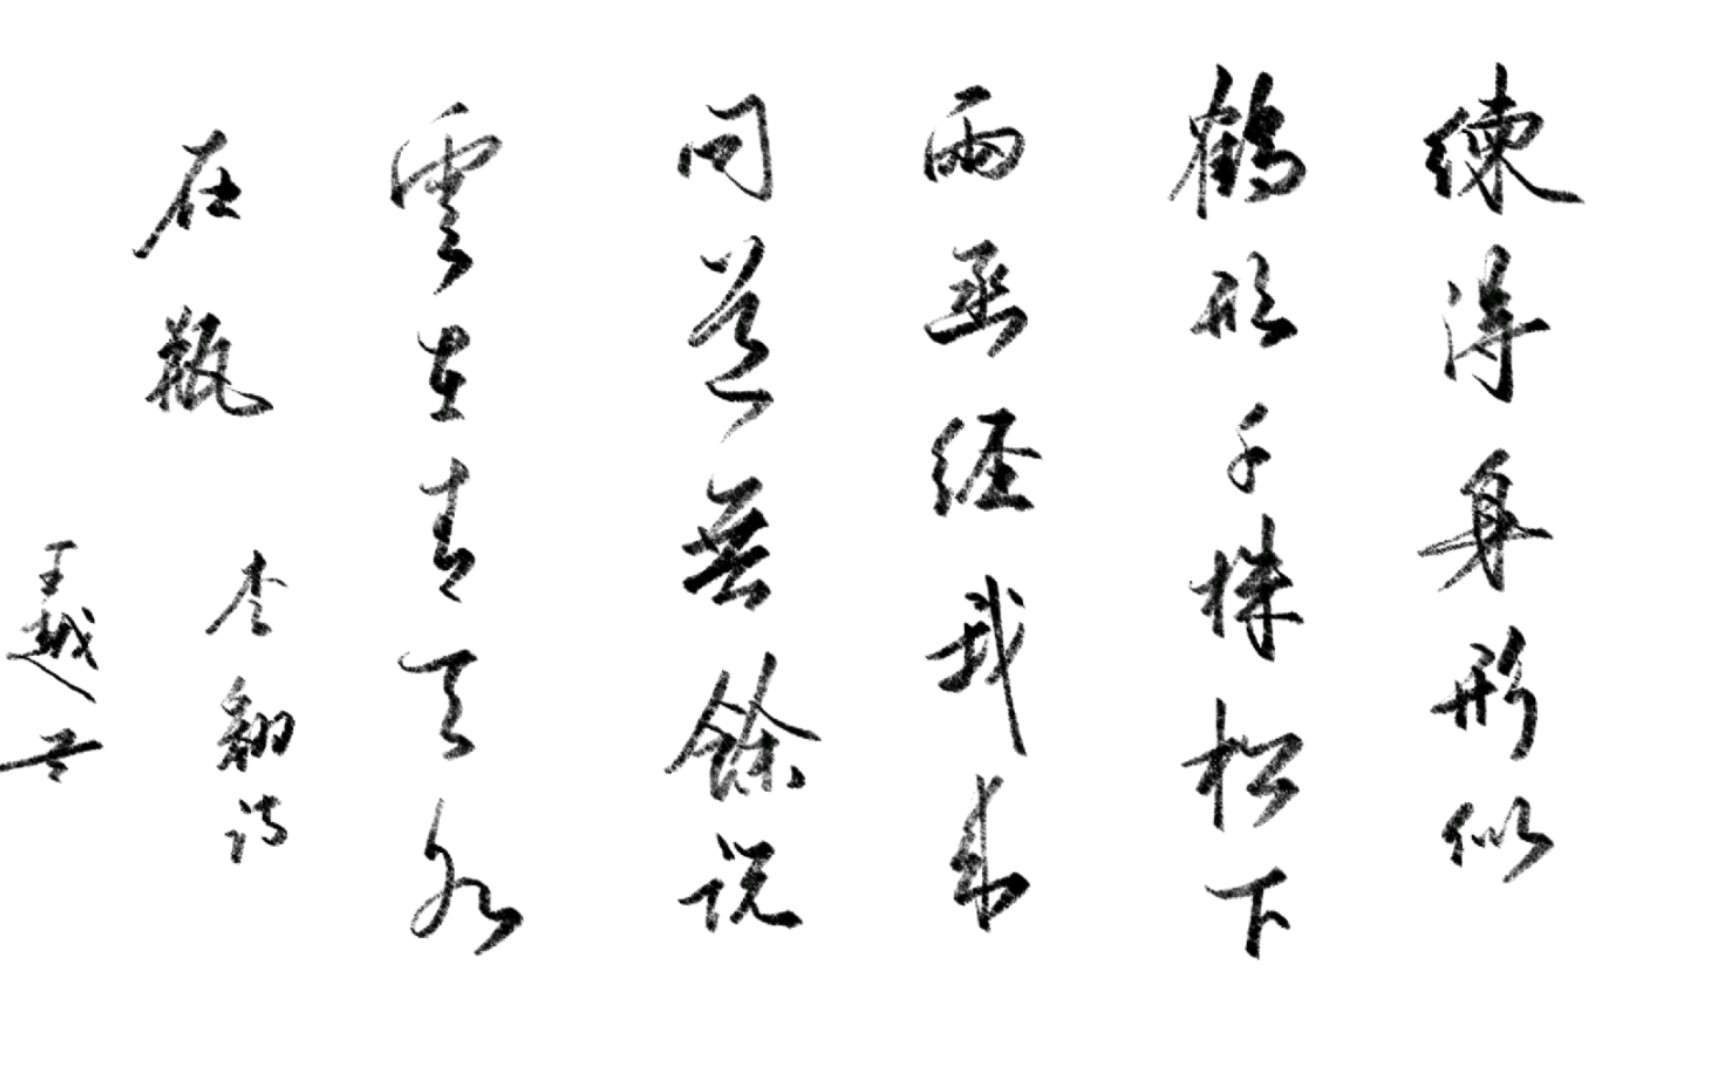 練得身形似
鶴形千株松下
兩函经我來
問道無餘說
雲在青天水
在瓶
李翱诗
王越書